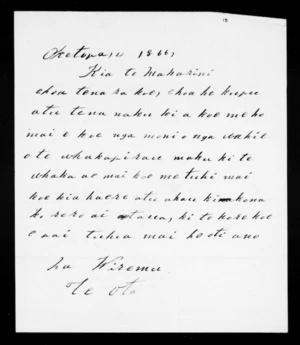 Oketopa 11 1866
Kia te Makarini
ehoa tena ra koe, ehoa he kupu
atu tena naku ki a koe me ho
mai e koe nga moni o nga wahi
o te whakapirau maku ki te
whaka ae mai koe me tuhi mai
koe kia haere atu ahau ki kona
ki reira ai taua, ki te kore koe
e pai tuhia mai hoki ano
Na Wiremu
Te Ota